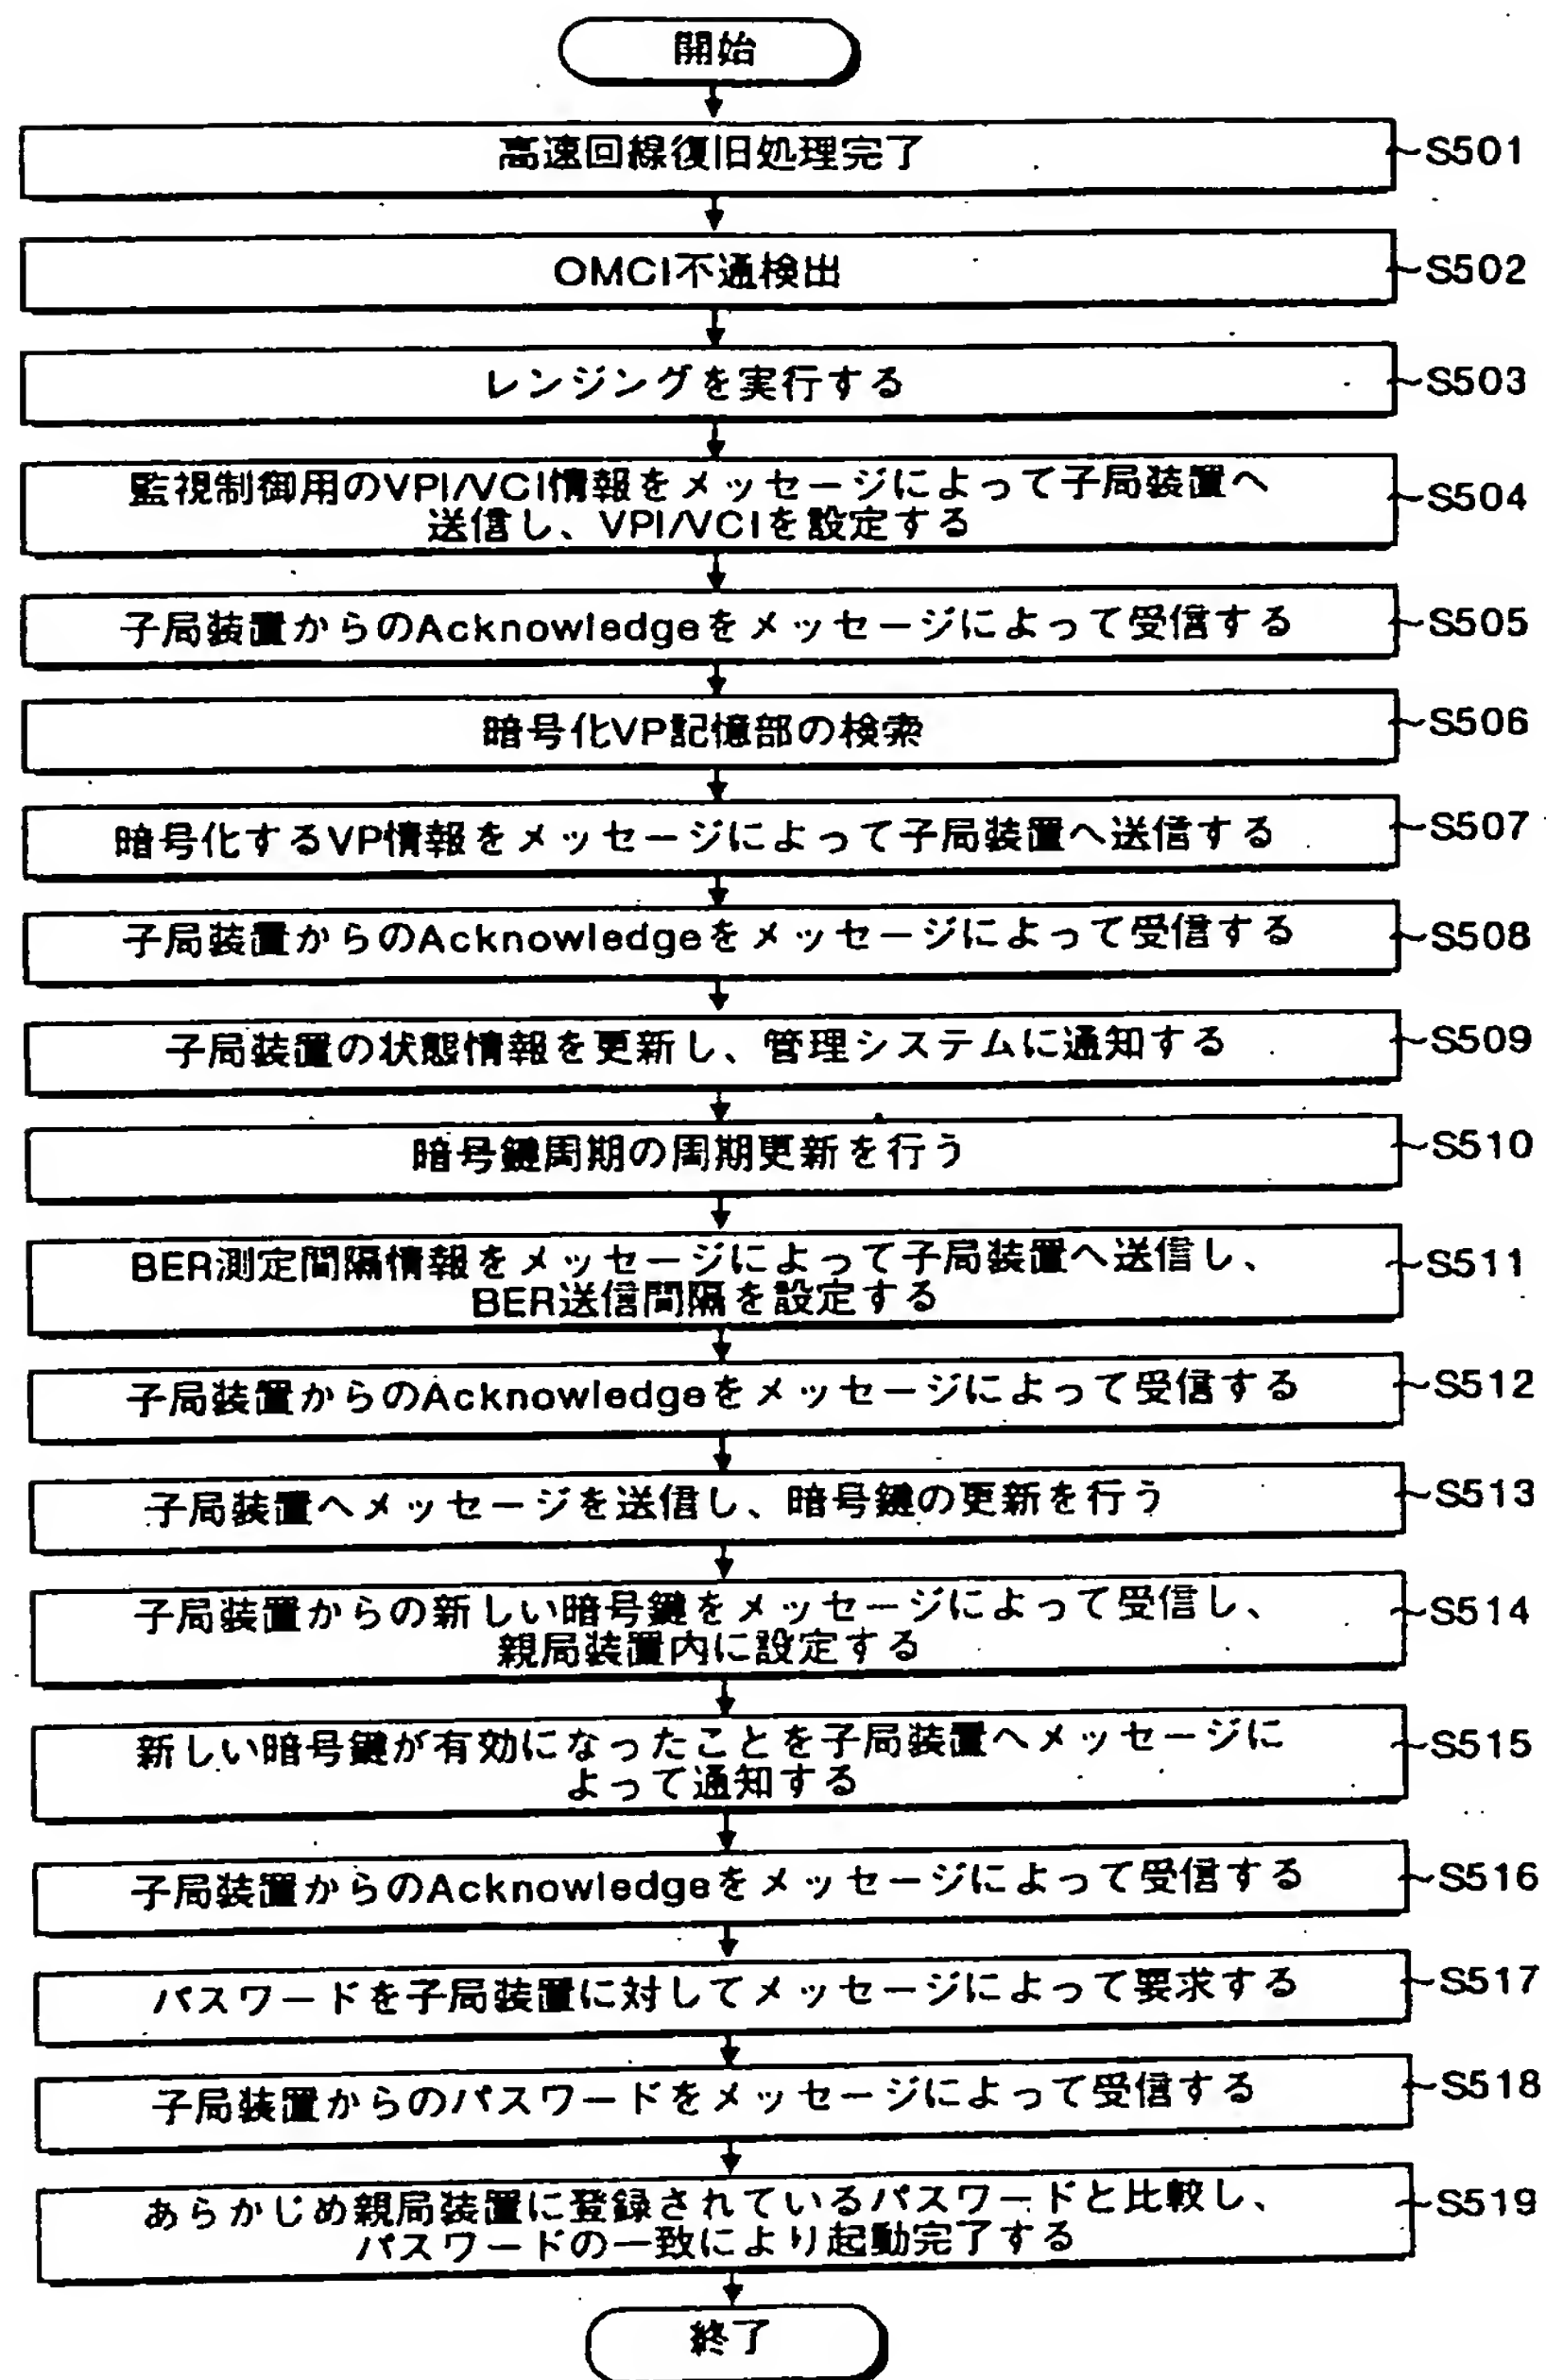 開始
高速回線復旧処理完了
S501
OMCI不通検出
S502
レンジングを実行する
S503
監視制御用のVPI/VCI情報をメッセージによって子局装置へ
送信し、VPI/VCIを設定する
S504
子局装置からのAcknowledgeをメッセージによって受信する
S505
暗号化VP記憶部の検索
S506
暗号化するVP情報をメッセージによって子局装置へ送信する
S507
子局装置からのAcknowledgeをメッセージによって受信する
S508
子局装置の状態情報を更新し、管理システムに通知する
S509
暗号鍵周期の周期更新を行う
S510
BER測定間隔情報をメッセージによって子局装置へ送信し、
BER送信間隔を設定する
S511
子局装置からのAcknowledgeをメッセージによって受信する
S512
子局装置へメッセージを送信し、暗号鍵の更新を行う
S513
子局装置からの新しい暗号鍵をメッセージによって受信し、
親局装置内に設定する
S514
新しい暗号鍵が有効になったことを子局装置へメッセージに
よって通知する
S515
子局装置からのAcknowledgeをメッセージによって受信する
S516
パスワードを子局装置に対してメッセージによって要求する
S517
子局装置からのパスワードをメッセージによって受信する
S518
あらかじめ親局装置に登録されているパスワードと比較し、
パスワードの一致により起動完了する
S519
終了